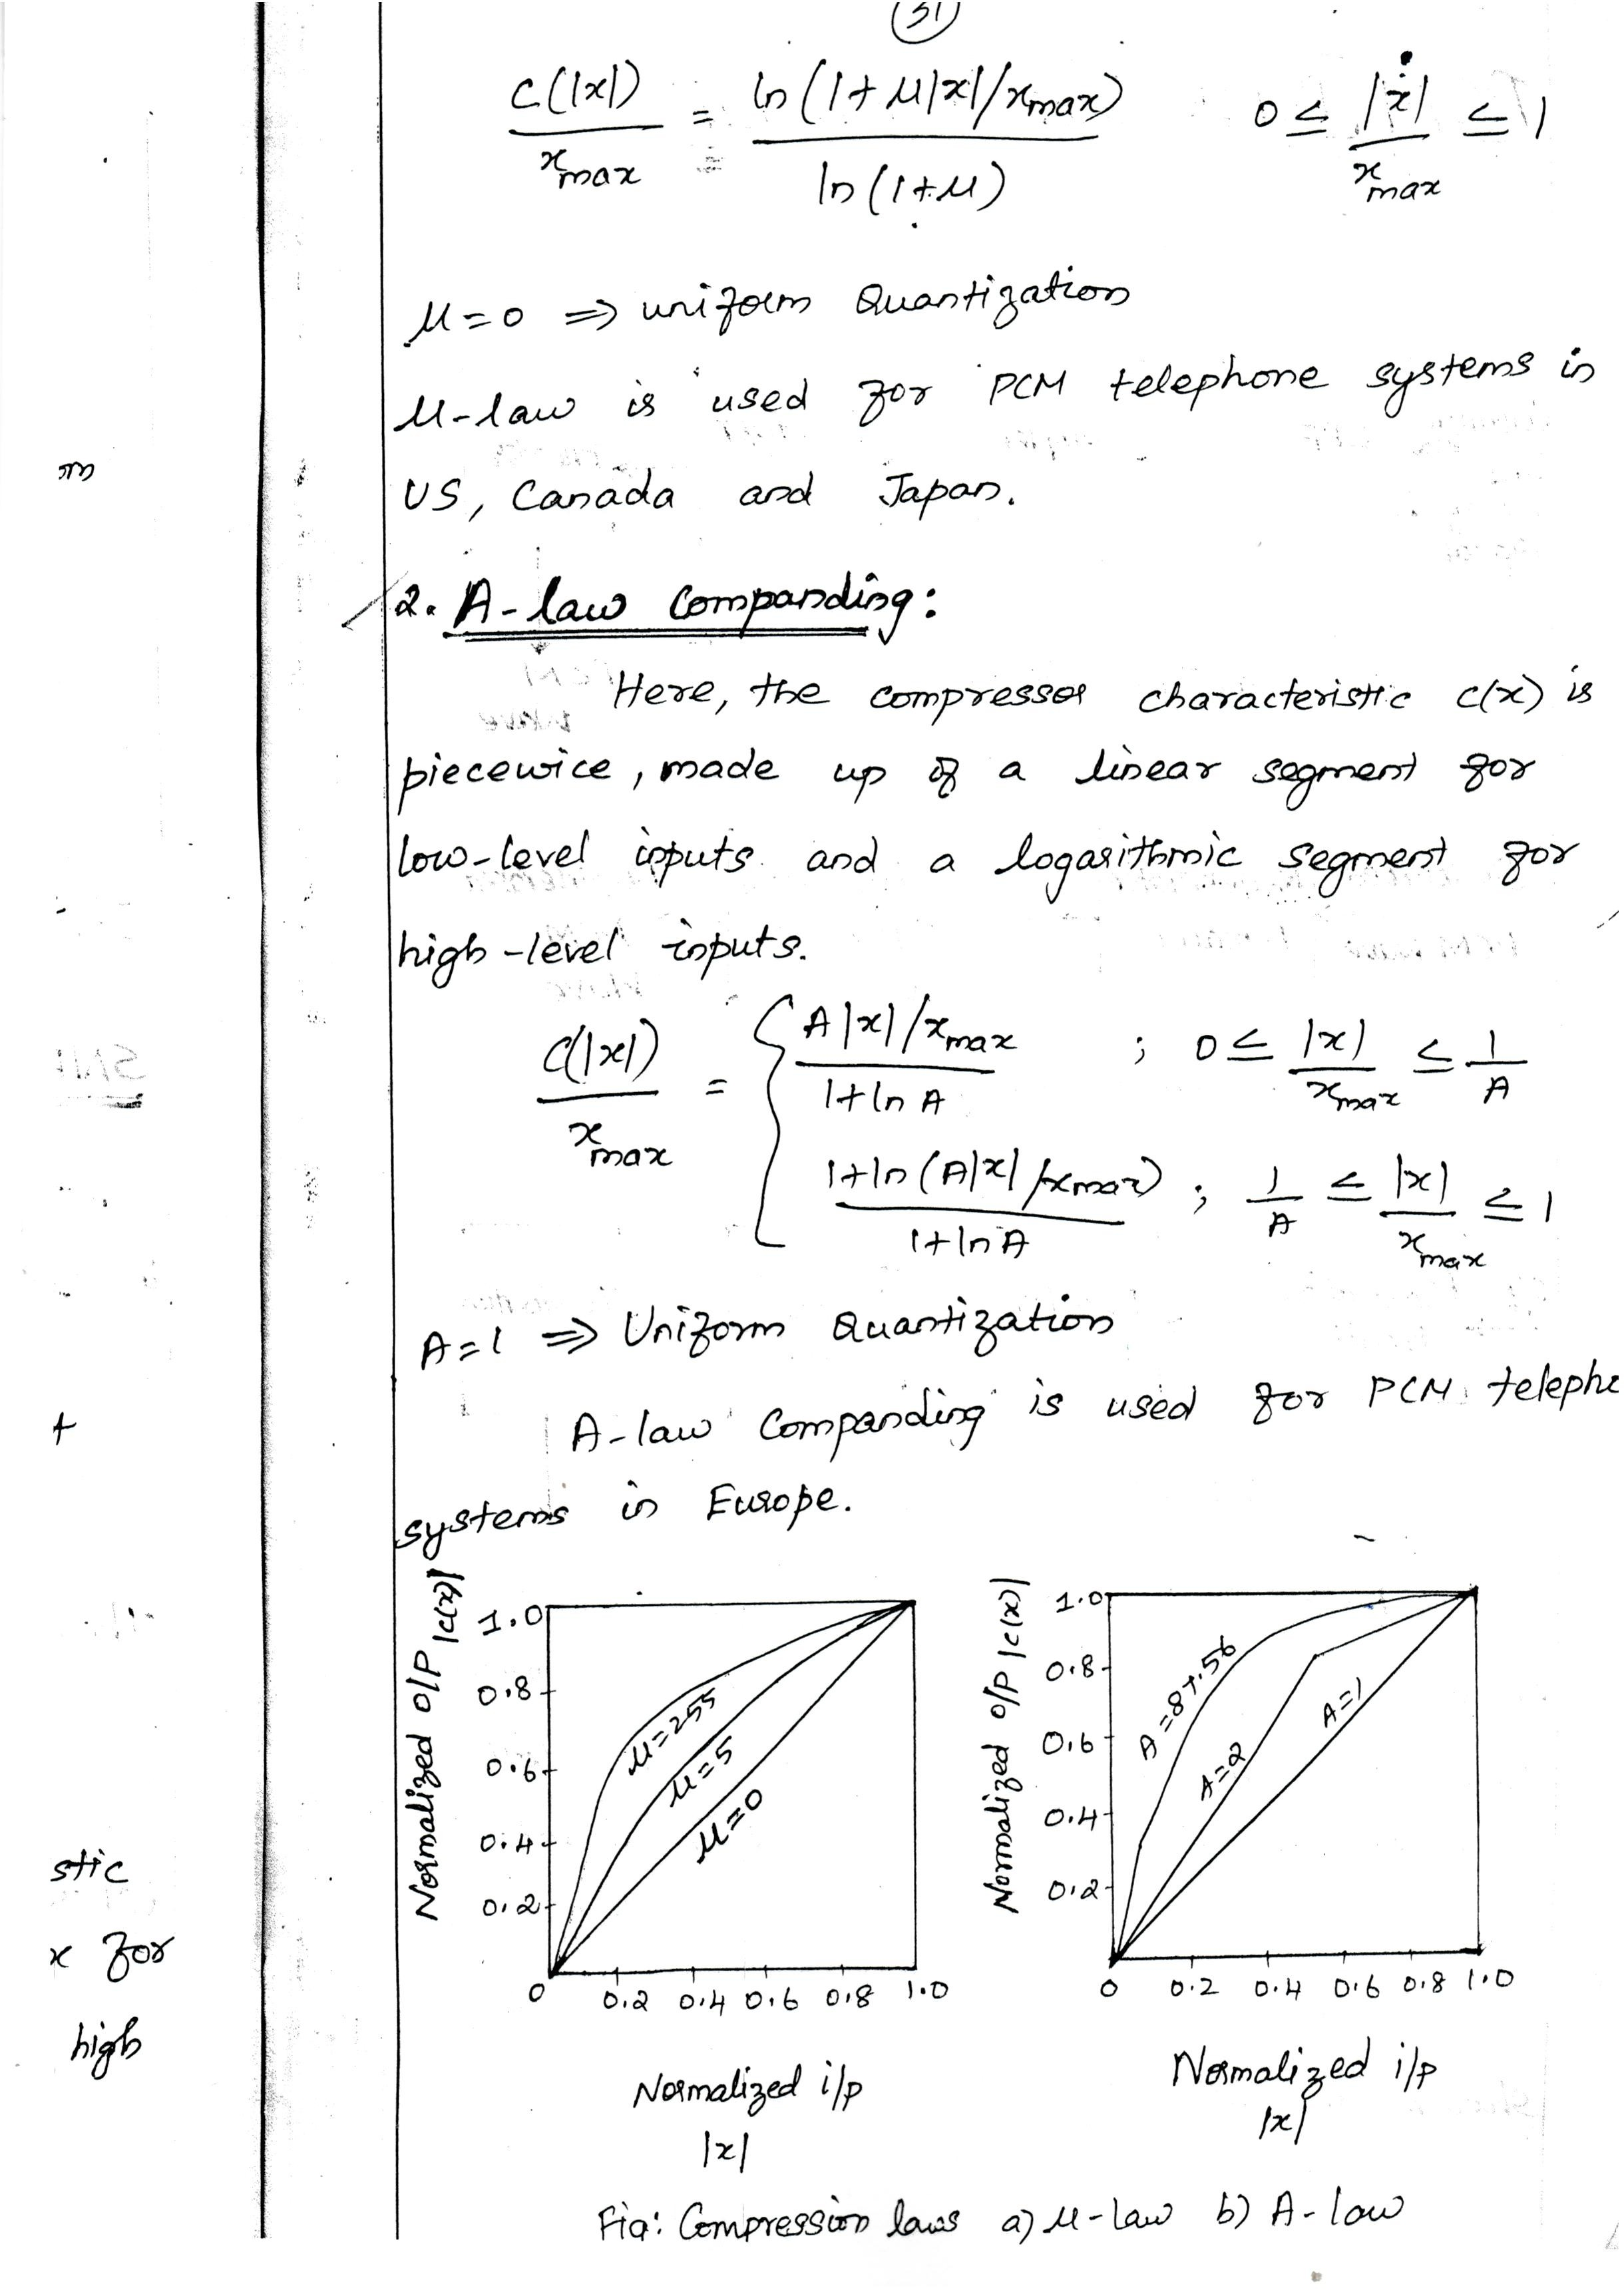 31
C(|x|) / xmax = ln(1+μ|x|/xmax) / ln(1+μ)    0 ≤ |x|/xmax ≤ 1
μ=0 ⇒ uniform Quantization
μ-law is used for PCM telephone systems in
US, Canada and Japan.
2. A-law Companding:
Here, the compressor characteristic c(x) is
piecewice, made up of a linear segment for
low-level inputs and a logarithmic segment for
high-level inputs.
C(|x|) / xmax = { A|x|/xmax / 1+ln A ; 0 ≤ |x|/xmax ≤ 1/A
1+ln(A|x|/xmax) / 1+ln A ; 1/A ≤ |x|/xmax ≤ 1
A=1 ⇒ Uniform Quantization
A-law Companding is used for PCM telepho
systems in Europe.
Normalized O/P |c(x)|
1.0
0.8
0.6
0.4
0.2
0 0.2 0.4 0.6 0.8 1.0
μ=255
μ=5
μ=0
Normalized i/p
|x|
Normalized o/p |c(x)|
1.0
0.8
0.6
0.4
0.2
0 0.2 0.4 0.6 0.8 1.0
A=87.56
A=2
A=1
Normalized i/p
|x|
Fig: Compression laws a) μ-law b) A-law
m
t
stic
x for
high